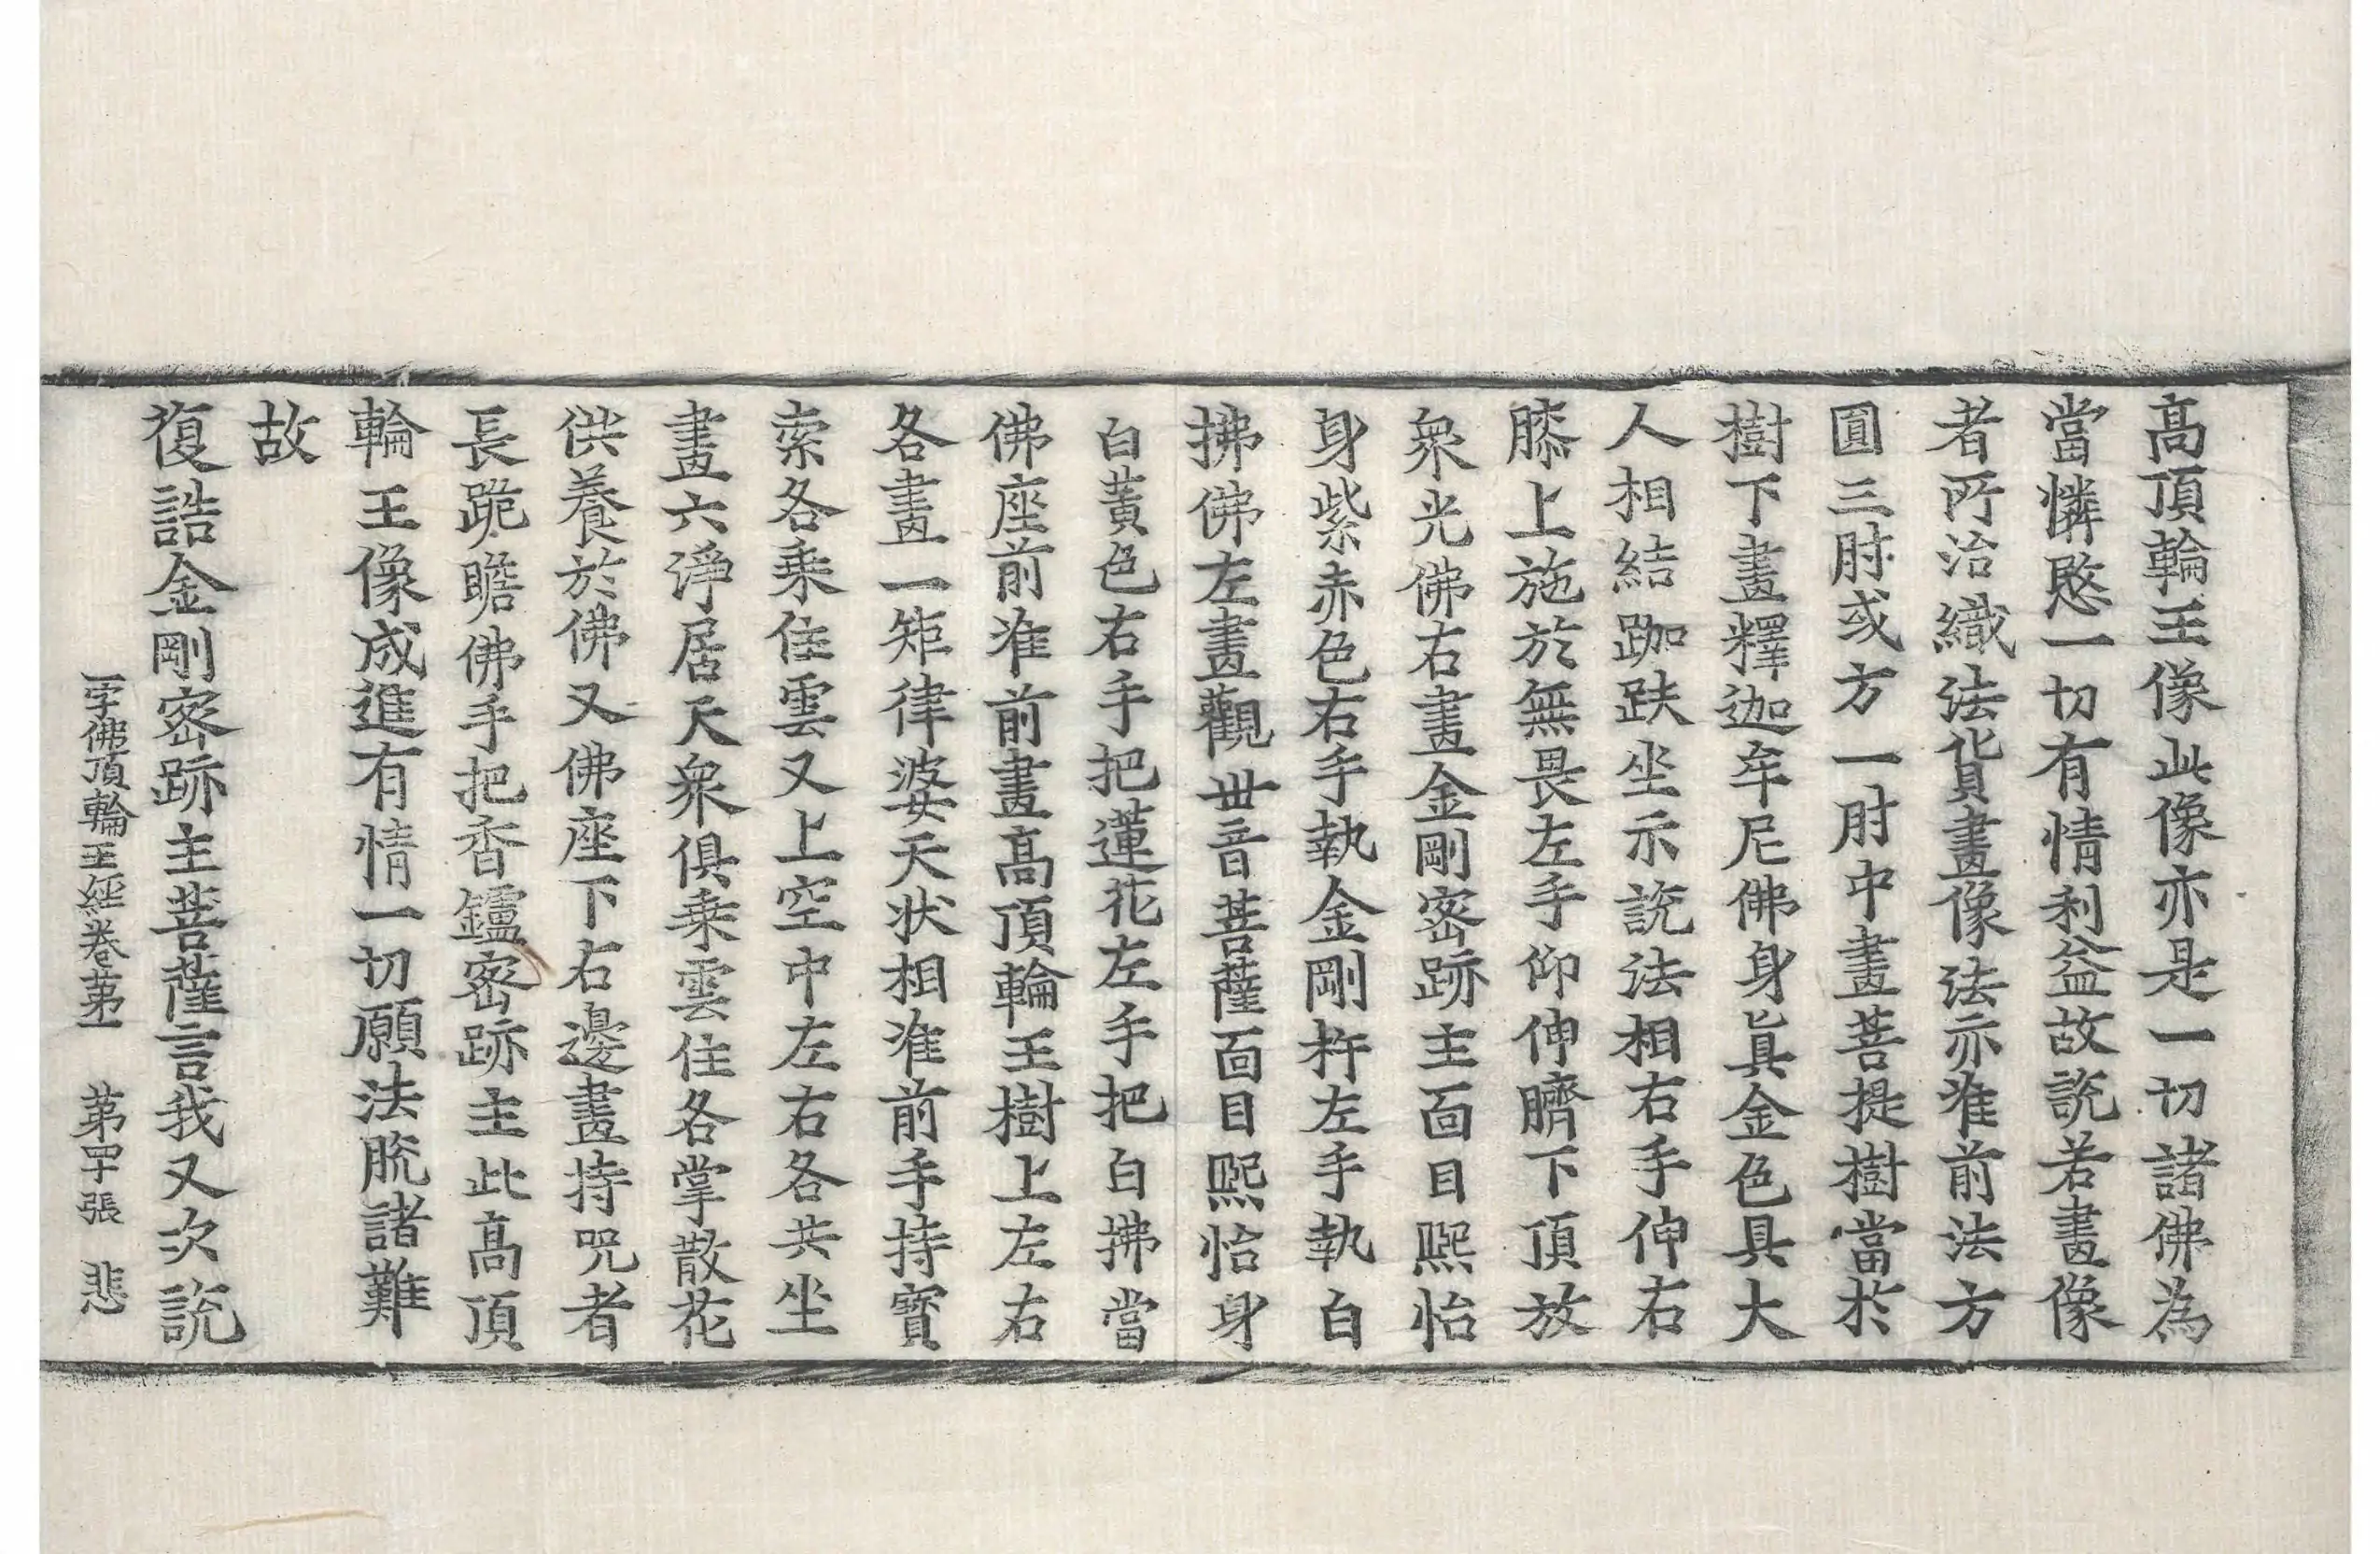 高頂輪王像此像亦是一切諸佛為
當憐愍一切有情利益故說若畫像
者所治織法貨畫像法亦准前法方
圓三肘或方一肘中畫菩提樹當於
樹下畫釋迦牟尼佛身真金色具大
人相結跏趺坐示說法相右手伸右
膝上施於無畏左手仰伸臍下頂放
衆光佛右畫金剛密跡主面目熈怡
身紫赤色右手執金剛杵左手執白
拂佛左畫觀世音菩薩面目熈怡身
白黃色右手把蓮花左手把白拂當
佛座前准前畫高頂輪王樹上左右
各畫一矩律婆天狀相准前手持寶
索各乘住雲又上空中左右各共坐
畫六淨居天衆俱乘雲住各掌散花
供養於佛又佛座下右邊畫持咒者
長跪瞻佛手把香鑪密跡主此高頂
輪王像成進有情一切願法脫諸難
故
復誥金剛密跡主菩薩言我又次說
一字佛頂輪王經卷第一 第四十張 悲